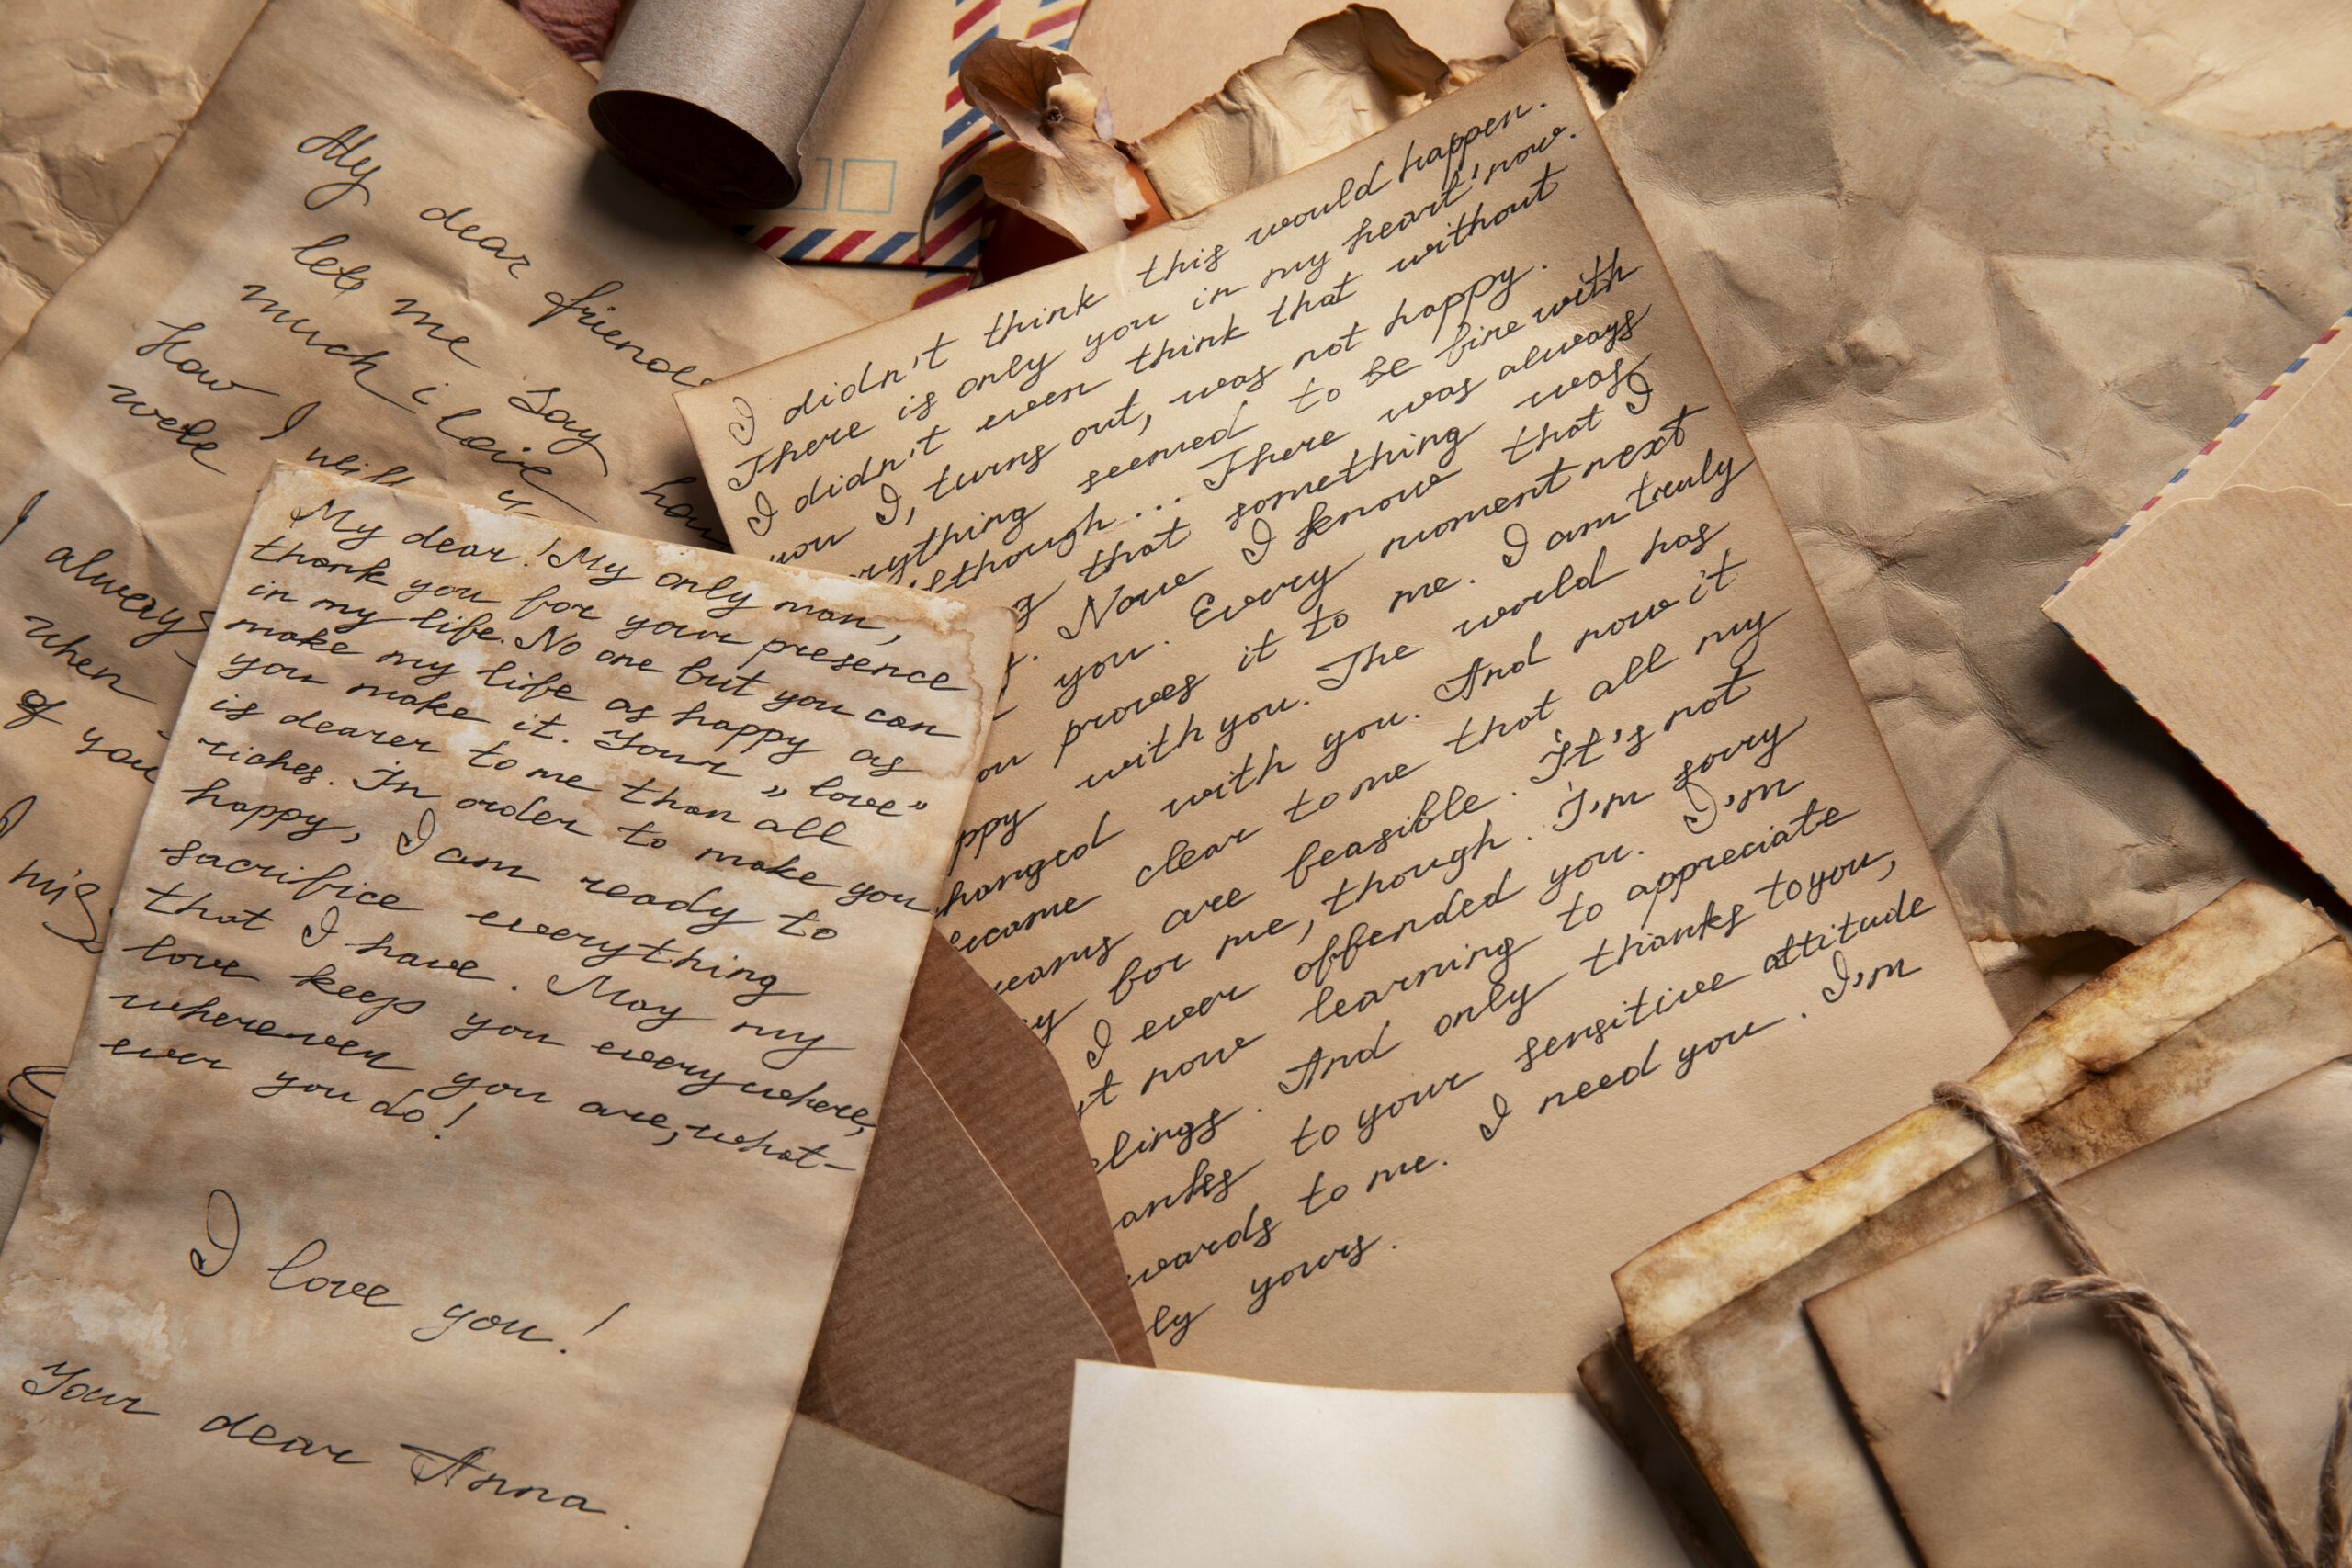 My dear friend
let me say
much i love
how I will
wele
how
I always
when
of you
I mis
My dear! My only man,
thank you for your presence
in my life. No one but you can
make my life as happy as
you make it. Your "love"
is dearer to me than all
riches. In order to make you
happy, I am ready to
sacrifice everything
that I have. May my
love keep you everywhere,
wherever you are, what-
ever you do!
I love you!
Your dear Anna.
I didn't think this would happen.
There is only you in my heart now.
I didn't even think that without
you I, turns out, was not happy.
rything seemed to be fine with
lthough... There was always
g that something was
. Now I know that I
you. Every moment next
ou proves it to me. I am truly
ppy with you. The world has
hanged with you. And now it
ecame clear to me that all my
reams are feasible. It's not
y for me, though. I'm sorry
I ever offended you. I'm
st now learning to appreciate
elings. And only thanks to you,
anks to your sensitive attitude
wards to me. I need you. I'm
ly yours.